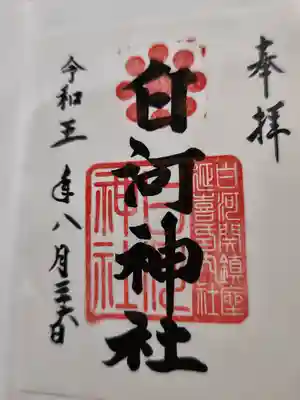 奉拝
白河神社
令和五年八月二十六日
白河関鎮座
延喜式内社
白河
神社